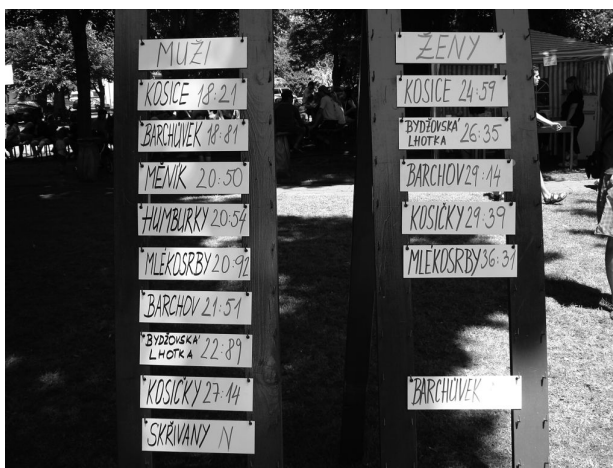 MUŽI
KOSICE 18:21
BARCHŮVEK 18:81
MĚNÍK 20:50
HUMBURKY 20:54
MLÉKOSRBY 20:92
BARCHOV 21:51
BYDŽOVSKÁ
LHOTKA 22:89
KOSIČKY 27:14
SKŘIVANY N
ŽENY
KOSICE 24:59
BYDŽOVSKÁ
LHOTKA 26:35
BARCHOV 29:14
KOSIČKY 29:39
MLÉKOSRBY 36:31
BARCHŮVEK